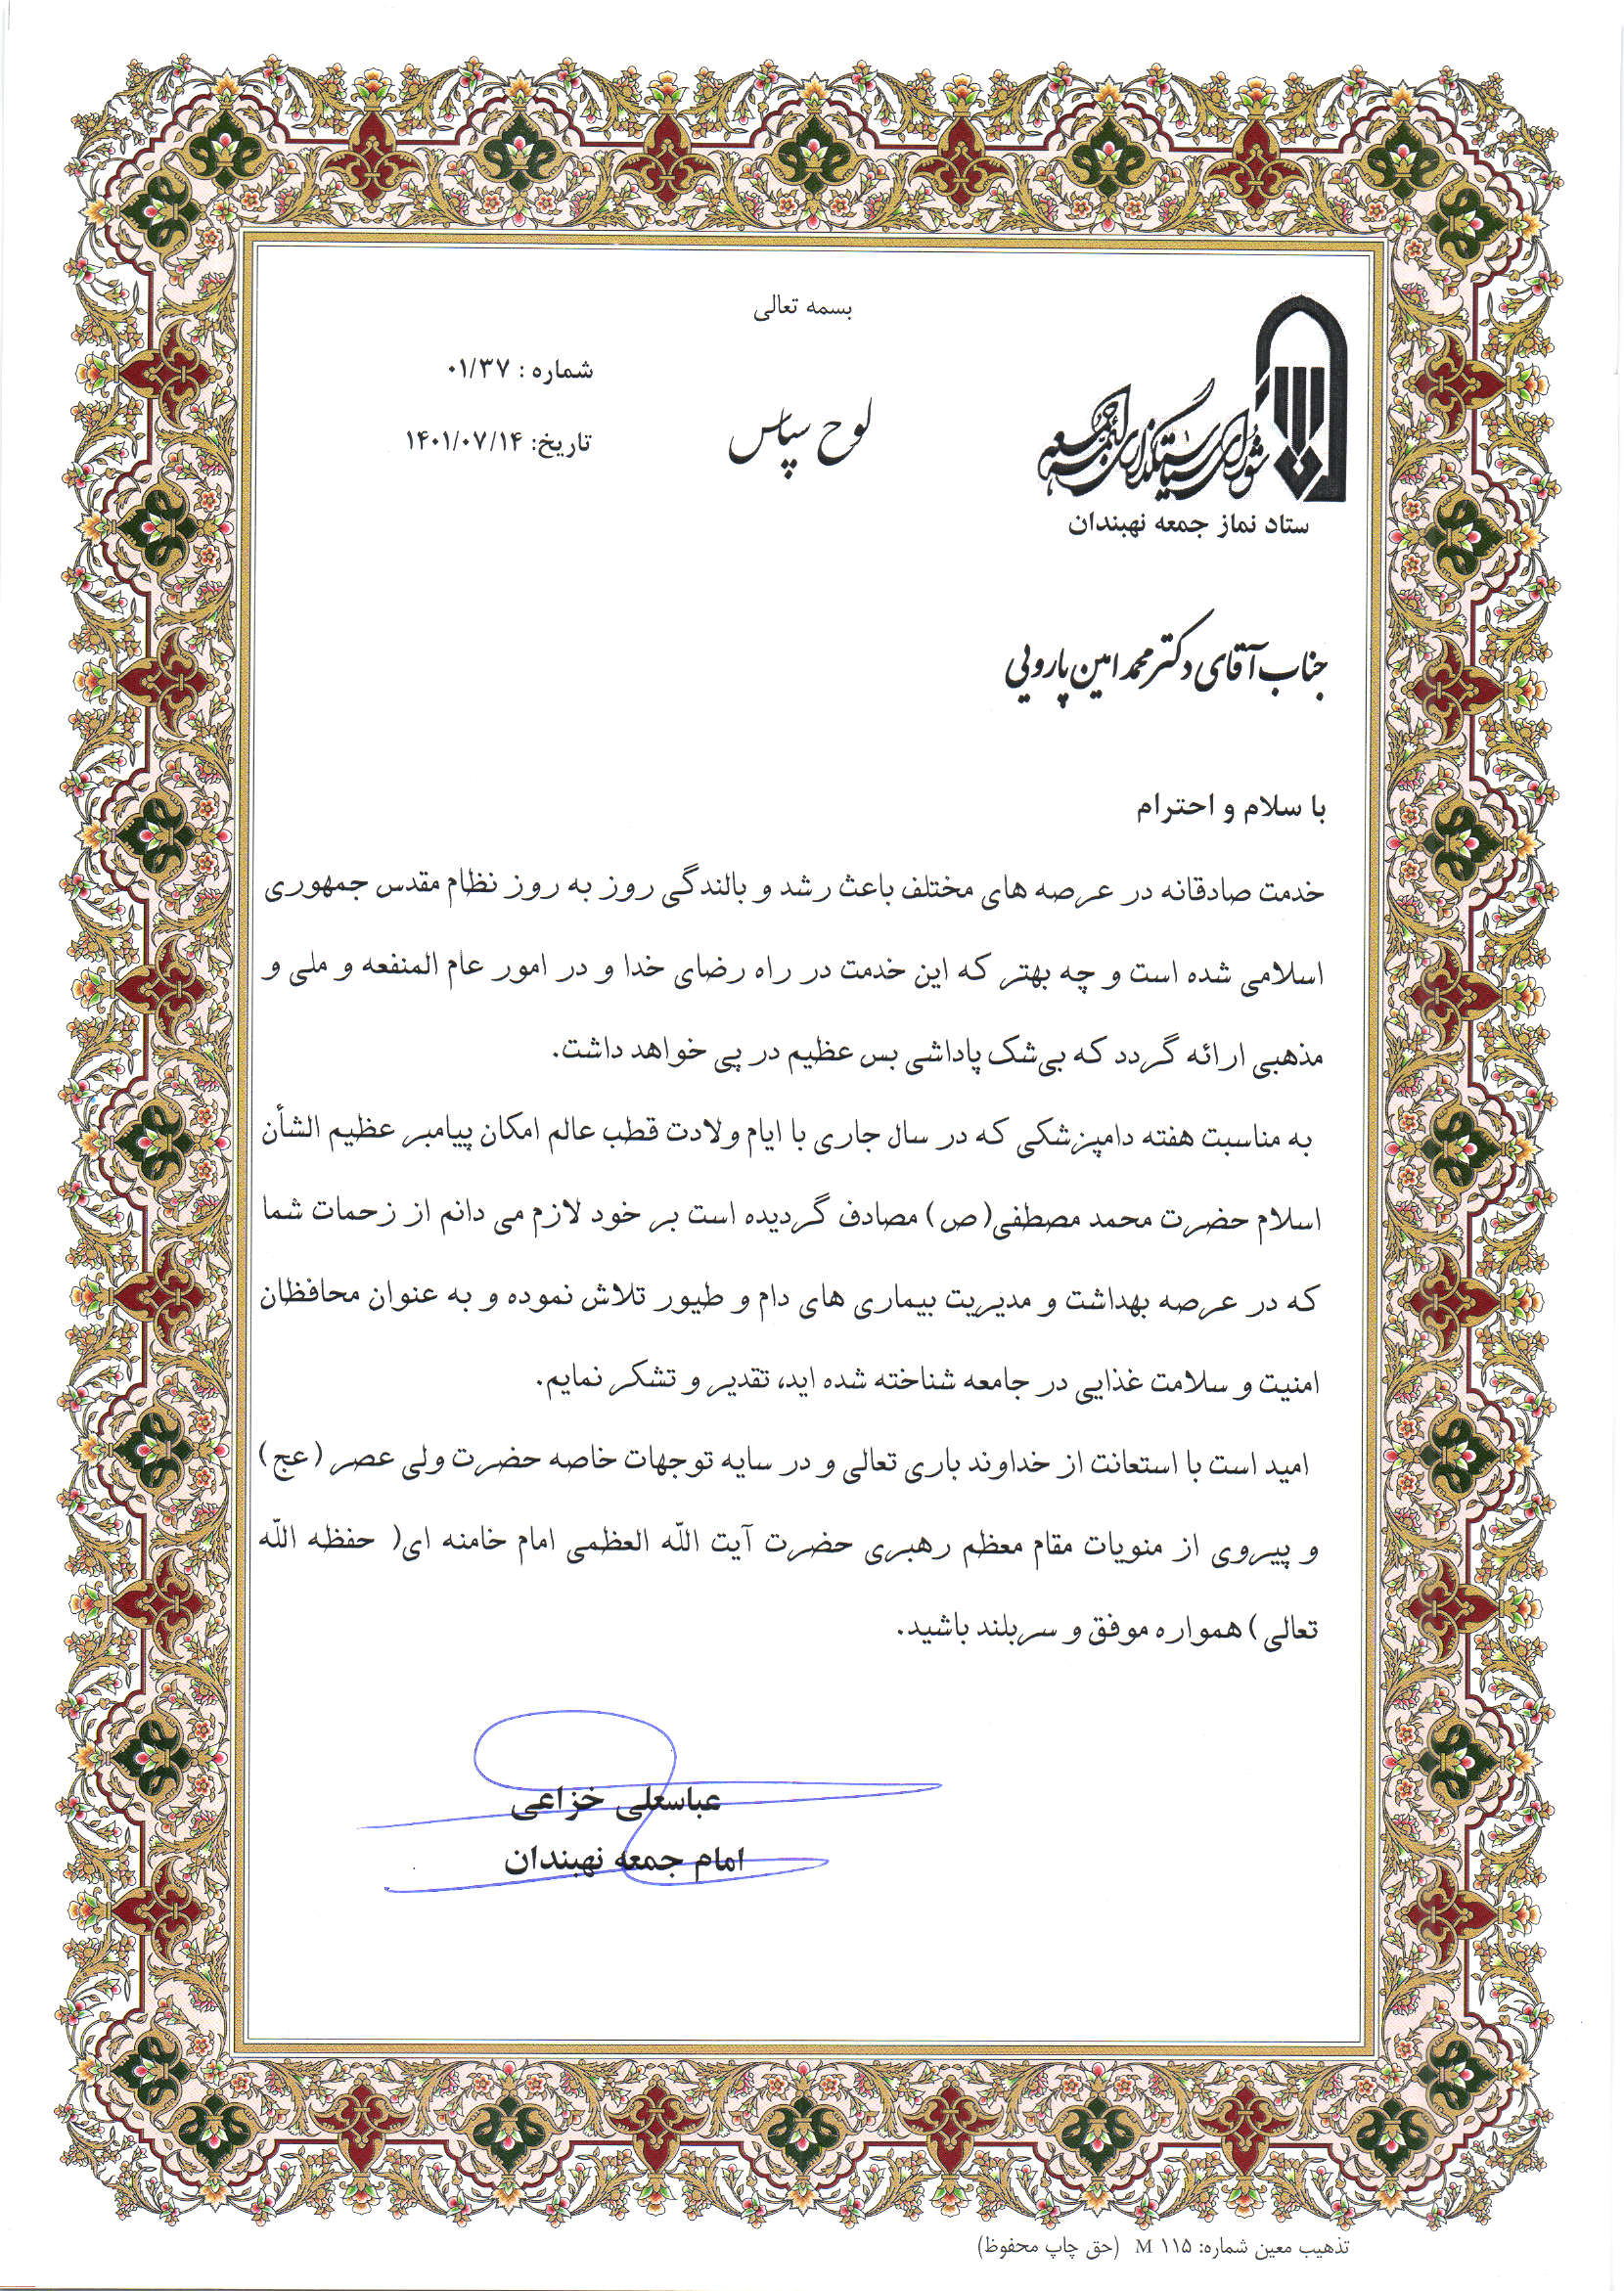 بسمه تعالی
شماره : ۰۱/۳۷
لوح سپاس
تاریخ: ۱۴۰۱/۰۷/۱۴
شورای سیاستگذاری ائمه جمعه
ستاد نماز جمعه نهبندان
جناب آقای دکتر محمد امین پارویی
با سلام و احترام
خدمت صادقانه در عرصه های مختلف باعث رشد و بالندگی روز به روز نظام مقدس جمهوری
اسلامی شده است و چه بهتر که این خدمت در راه رضای خدا و در امور عام المنفعه و ملی و
مذهبی ارائه گردد که بی‌شک پاداشی بس عظیم در پی خواهد داشت.
به مناسبت هفته دامپزشکی که در سال جاری با ایام ولادت قطب عالم امکان پیامبر عظیم الشأن
اسلام حضرت محمد مصطفی(ص) مصادف گردیده است بر خود لازم می دانم از زحمات شما
که در عرصه بهداشت و مدیریت بیماری های دام و طیور تلاش نموده و به عنوان محافظان
امنیت و سلامت غذایی در جامعه شناخته شده اید، تقدیر و تشکر نمایم.
امید است با استعانت از خداوند باری تعالی و در سایه توجهات خاصه حضرت ولی عصر (عج)
و پیروی از منویات مقام معظم رهبری حضرت آیت الله العظمی امام خامنه ای( حفظه الله
تعالی) همواره موفق و سربلند باشید.
عباسعلی خزاعی
امام جمعه نهبندان
تذهیب معین شماره: M ۱۱۵ (حق چاپ محفوظ)